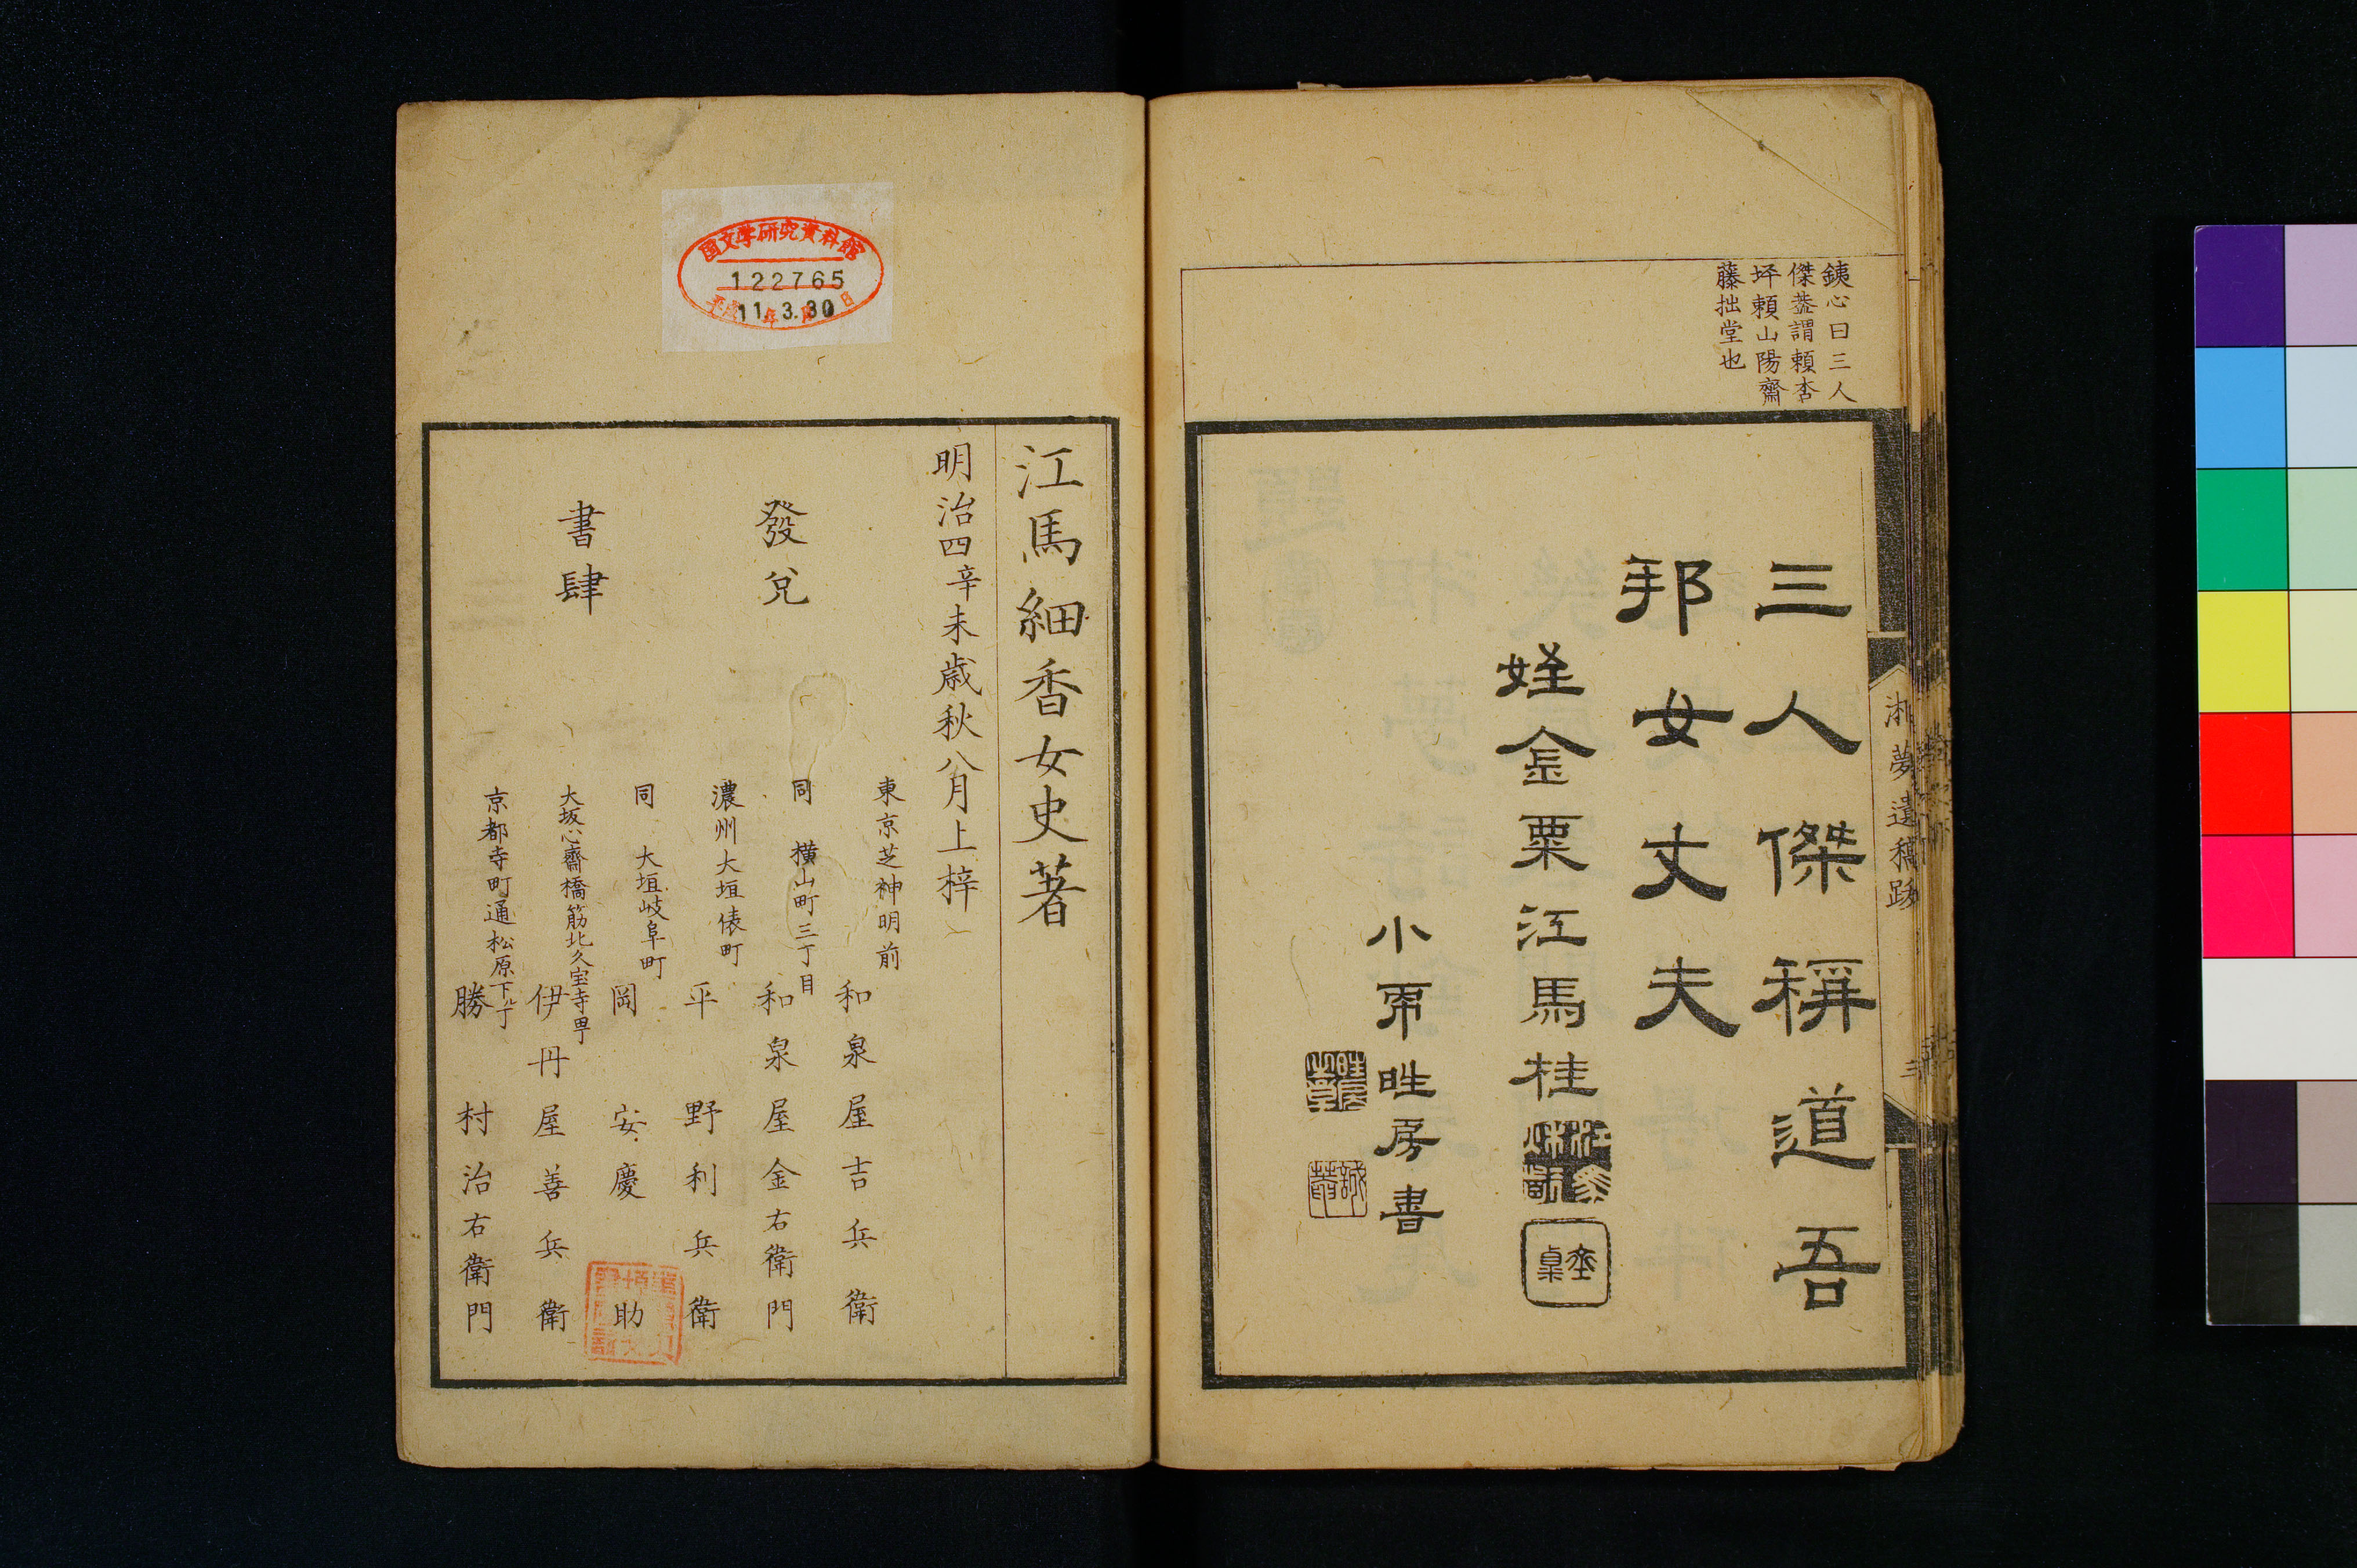 銕心曰三人
傑蓋謂頼杏
坪頼山陽齋
藤拙堂也
三人傑稱道吾
邦女丈夫
姪金粟江馬桂
小原
房書
湘夢遺稿跋
三
江馬細香女史著
明治四辛未歳秋八月上梓
發兌
書肆
東京芝神明前
和泉屋吉兵衛
同 横山町三丁目
和泉屋金右衛門
濃州大垣俵町
平野利兵衛
同 大垣岐阜町
岡安慶助
大坂心齋橋筋北久宝寺町
伊丹屋善兵衛
京都寺町通松原下ル丁
勝村治右衛門
国文学研究資料館
122765
平成11年3.30日